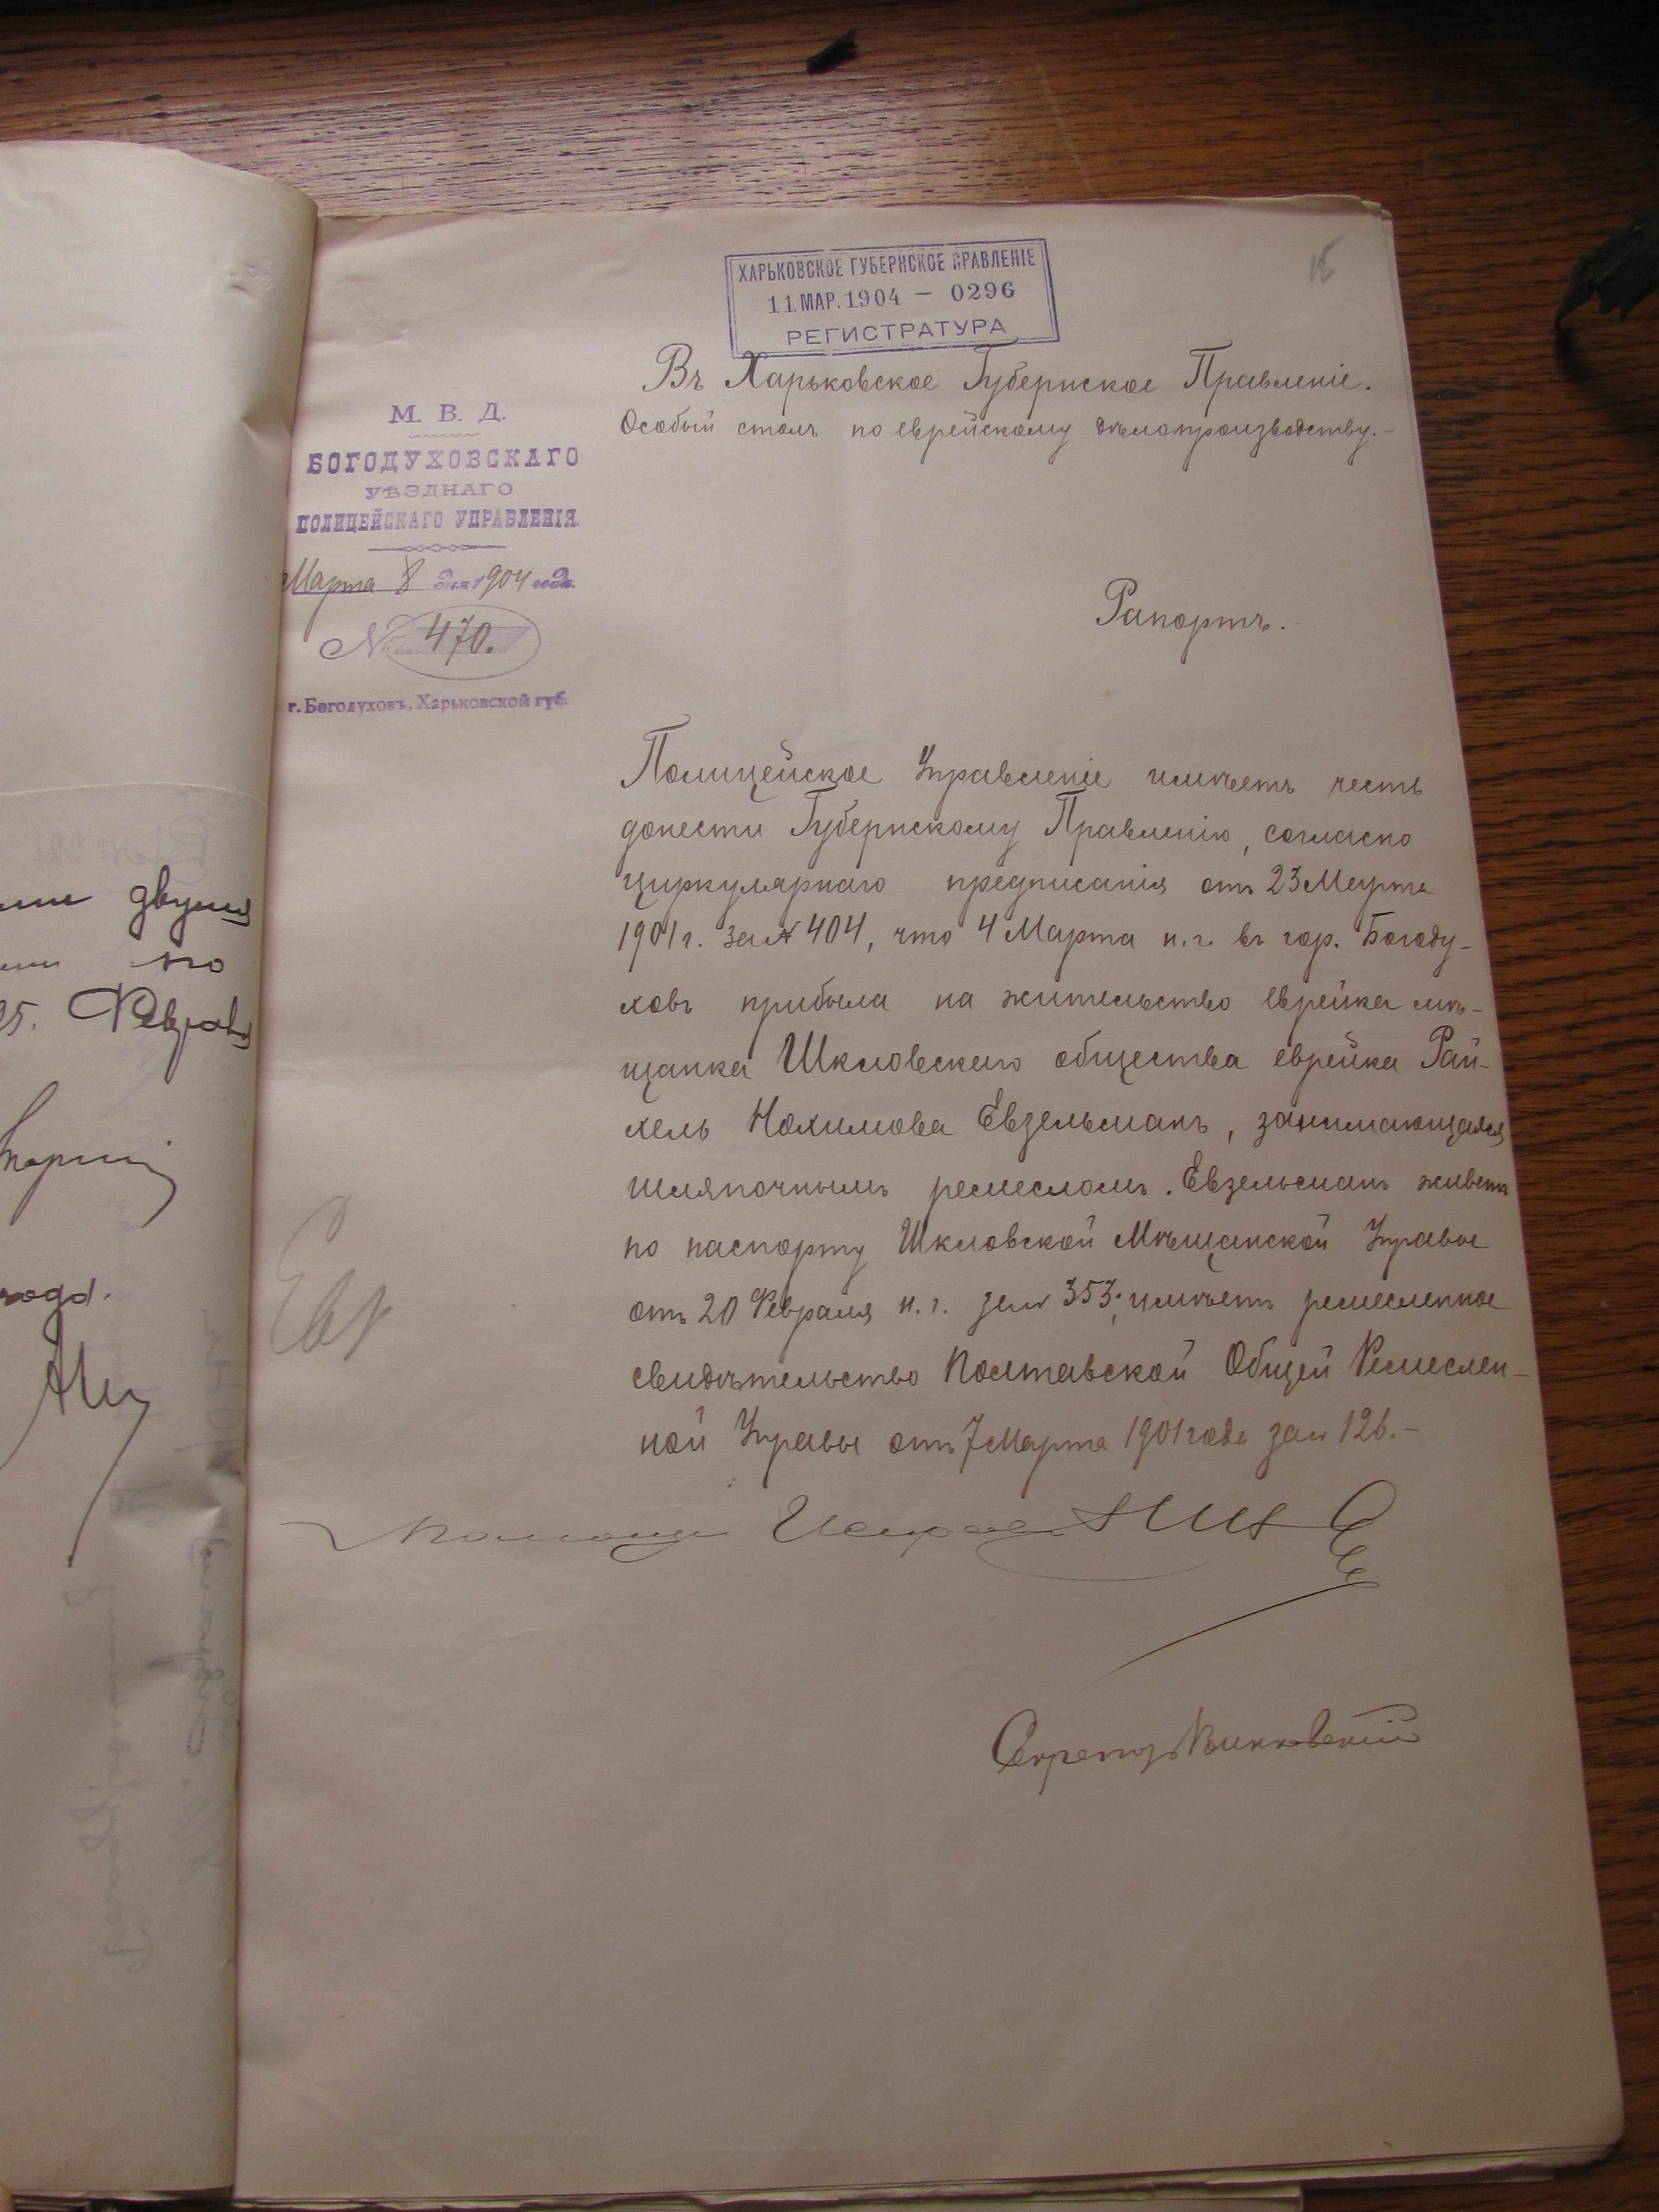 15
ХАРЬКОВСКОЕ ГУБЕРНСКОЕ ПРАВЛЕНІЕ
11 МАР. 1904 — 0296
РЕГИСТРАТУРА
Въ Харьковское Губернское Правленіе.
Особый столъ по еврейскому дѣлопроизводству.-
М. В. Д.
БОГОДУХОВСКАГО
УѢЗДНАГО
ПОЛИЦЕЙСКАГО УПРАВЛЕНІЯ
Марта 8 дня 1904 года.
№ 470.
г. Богодуховъ, Харьковской губ.
Рапортъ.-
Полицейское Управленіе имѣетъ честь
донести Губернскому Правленію, согласно
циркулярнаго предписанія отъ 23 Марта
1901 г. за № 404, что 4 Марта н.г. въ гор. Богоду-
ховъ прибыла на жительство еврейка мѣ-
щанка Шкловскаго общества еврейка Рай-
хель Нохимова Евзельманъ, занимающаяся
шляпочнымъ ремесломъ. Евзельманъ живетъ
по паспорту Шкловской Мѣщанской Управы
отъ 20 Февраля н.г. за № 353; имѣетъ ремесленное
свидѣтельство Полтавской Общей Ремеслен-
ной Управы отъ 7 Марта 1901 года за № 126.-
Евр
Секретарь
двумя
по
95. Февраля
года.